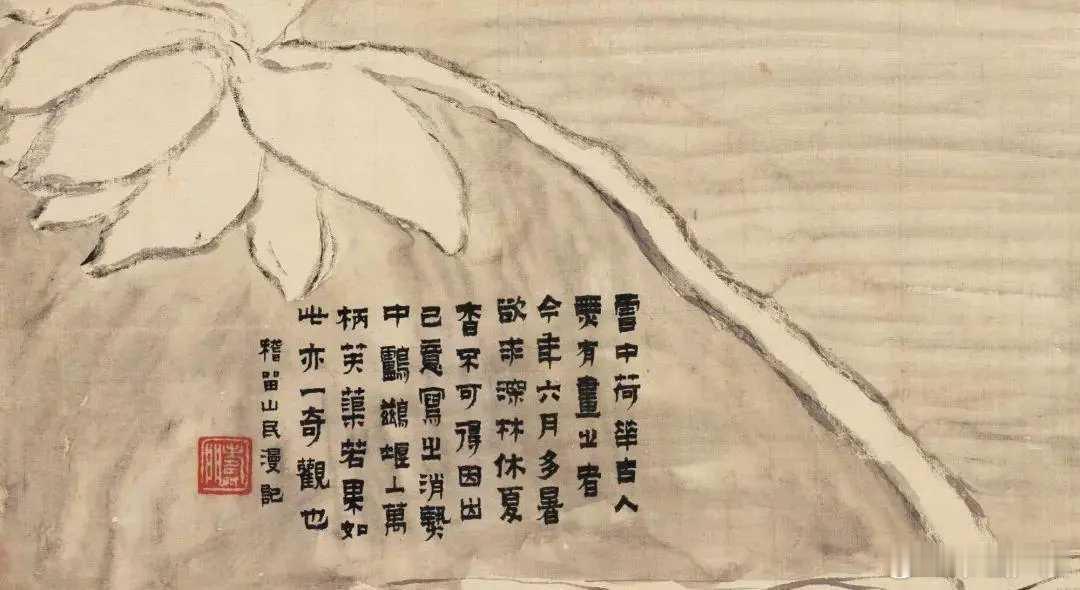 雪中荷華古人
爰有畫㞢者
今年六月多暑
欲求深林休夏
杳不可得因出
己意寫之消
中
柄芙蕖若果如
此亦一奇觀也
稽畱山民漫記